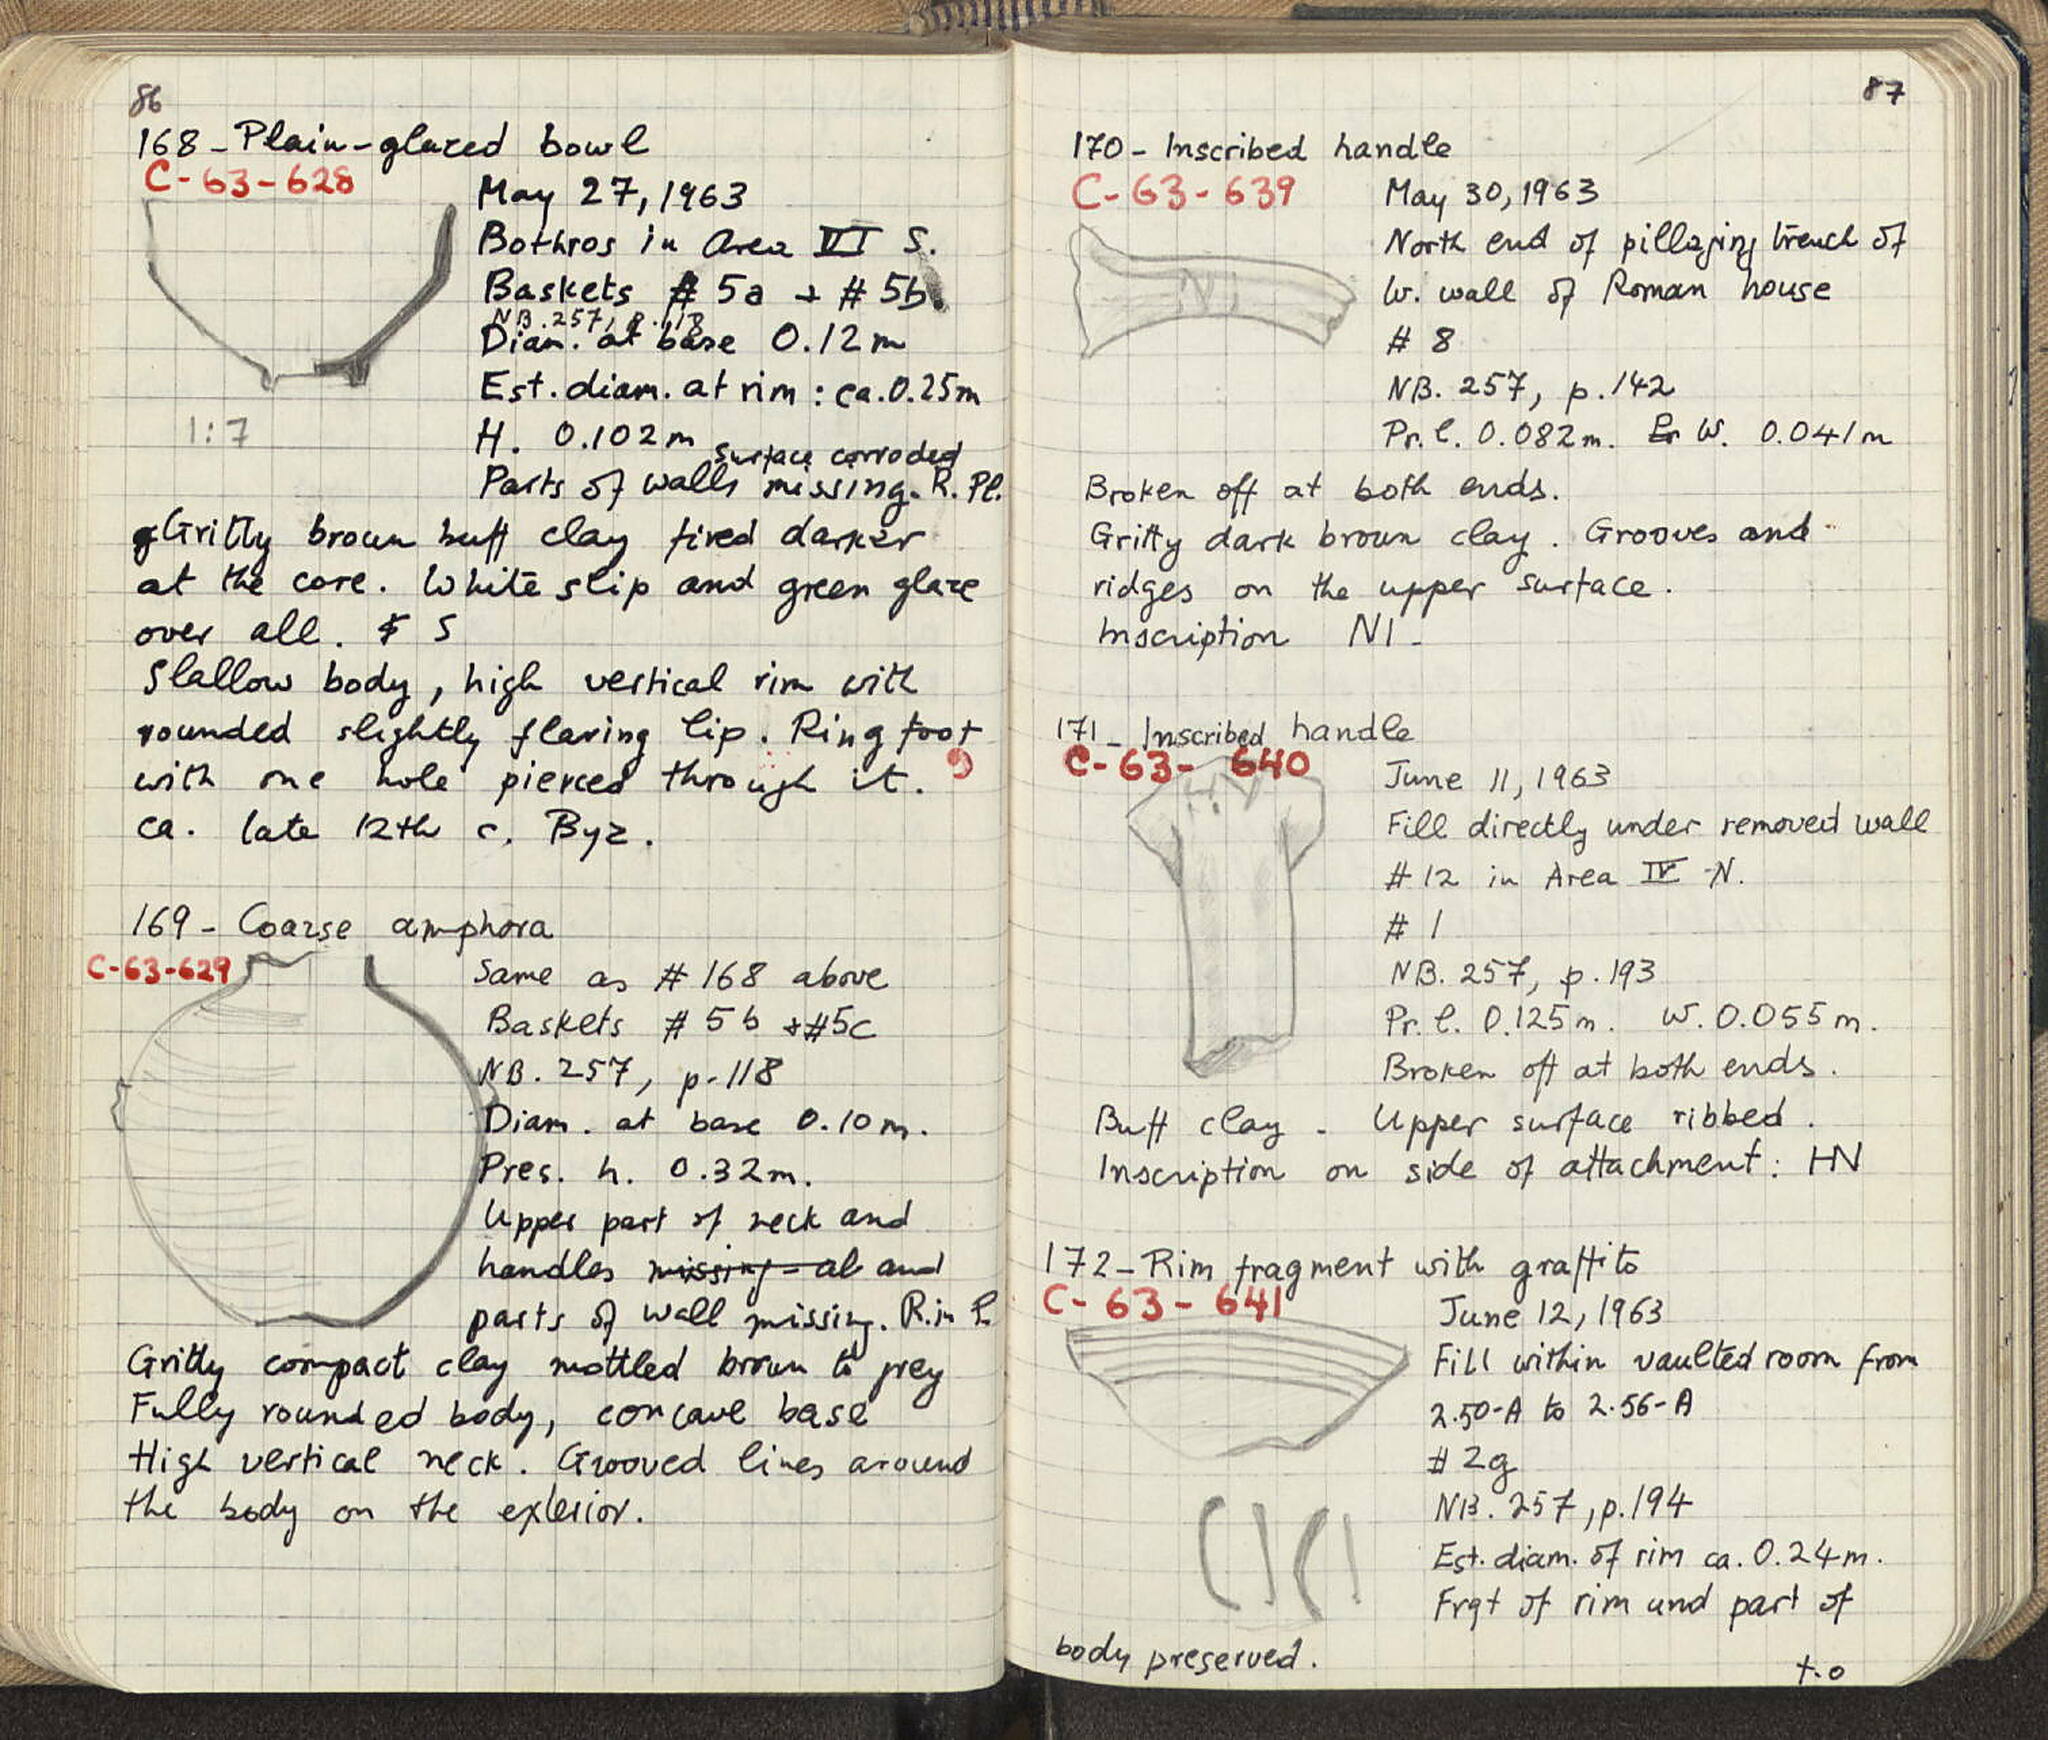 86
168 - Plain-glazed bowl
C-63-628
May 27, 1963
Bothros in Area VI S.
Baskets # 5a + # 5b
NB. 257, p. 118
Diam. at base 0.12 m
Est. diam. at rim : ca. 0.25m
H. 0.102 m
surface corroded
Parts of walls missing. R. Pl.
1:7
Gritty brown buff clay fired darker
at the core. White slip and green glaze
over all. S
Slallow body, high vertical rim with
rounded slightly flaring lip. Ring foot
with one hole pierced through it.
ca. late 12th c. Byz.
169 - Coarse amphora
C-63-629
Same as # 168 above
Baskets # 5b + #5c
NB. 257, p. 118
Diam. at base 0.10 m.
Pres. h. 0.32 m.
Upper part of neck and
handles missing - al and
parts of wall missing. R. in P.
Gritty compact clay mottled brown to grey
Fully rounded body, concave base
High vertical neck. Grooved lines around
the body on the exterior.
87
170 - Inscribed handle
C-63-639
May 30, 1963
North end of pillaging trench of
W. wall of Roman house
# 8
NB. 257, p. 142
Pr. l. 0.082 m. Pr W. 0.041 m
Broken off at both ends.
Gritty dark brown clay. Grooves and
ridges on the upper surface.
Inscription NI -
171 - Inscribed handle
C-63-640
June 11, 1963
Fill directly under removed wall
# 12 in Area IV N.
# 1
NB. 257, p. 193
Pr. l. 0.125 m. W. 0.055 m.
Broken off at both ends.
Buff clay - Upper surface ribbed.
Inscription on side of attachment: HN
172 - Rim fragment with graffito
C-63-641
June 12, 1963
Fill within vaulted room from
2.50-A to 2.56-A
# 2g
NB. 257, p. 194
Est. diam. of rim ca. 0.24 m.
Frgt of rim and part of
body preserved.
t.o